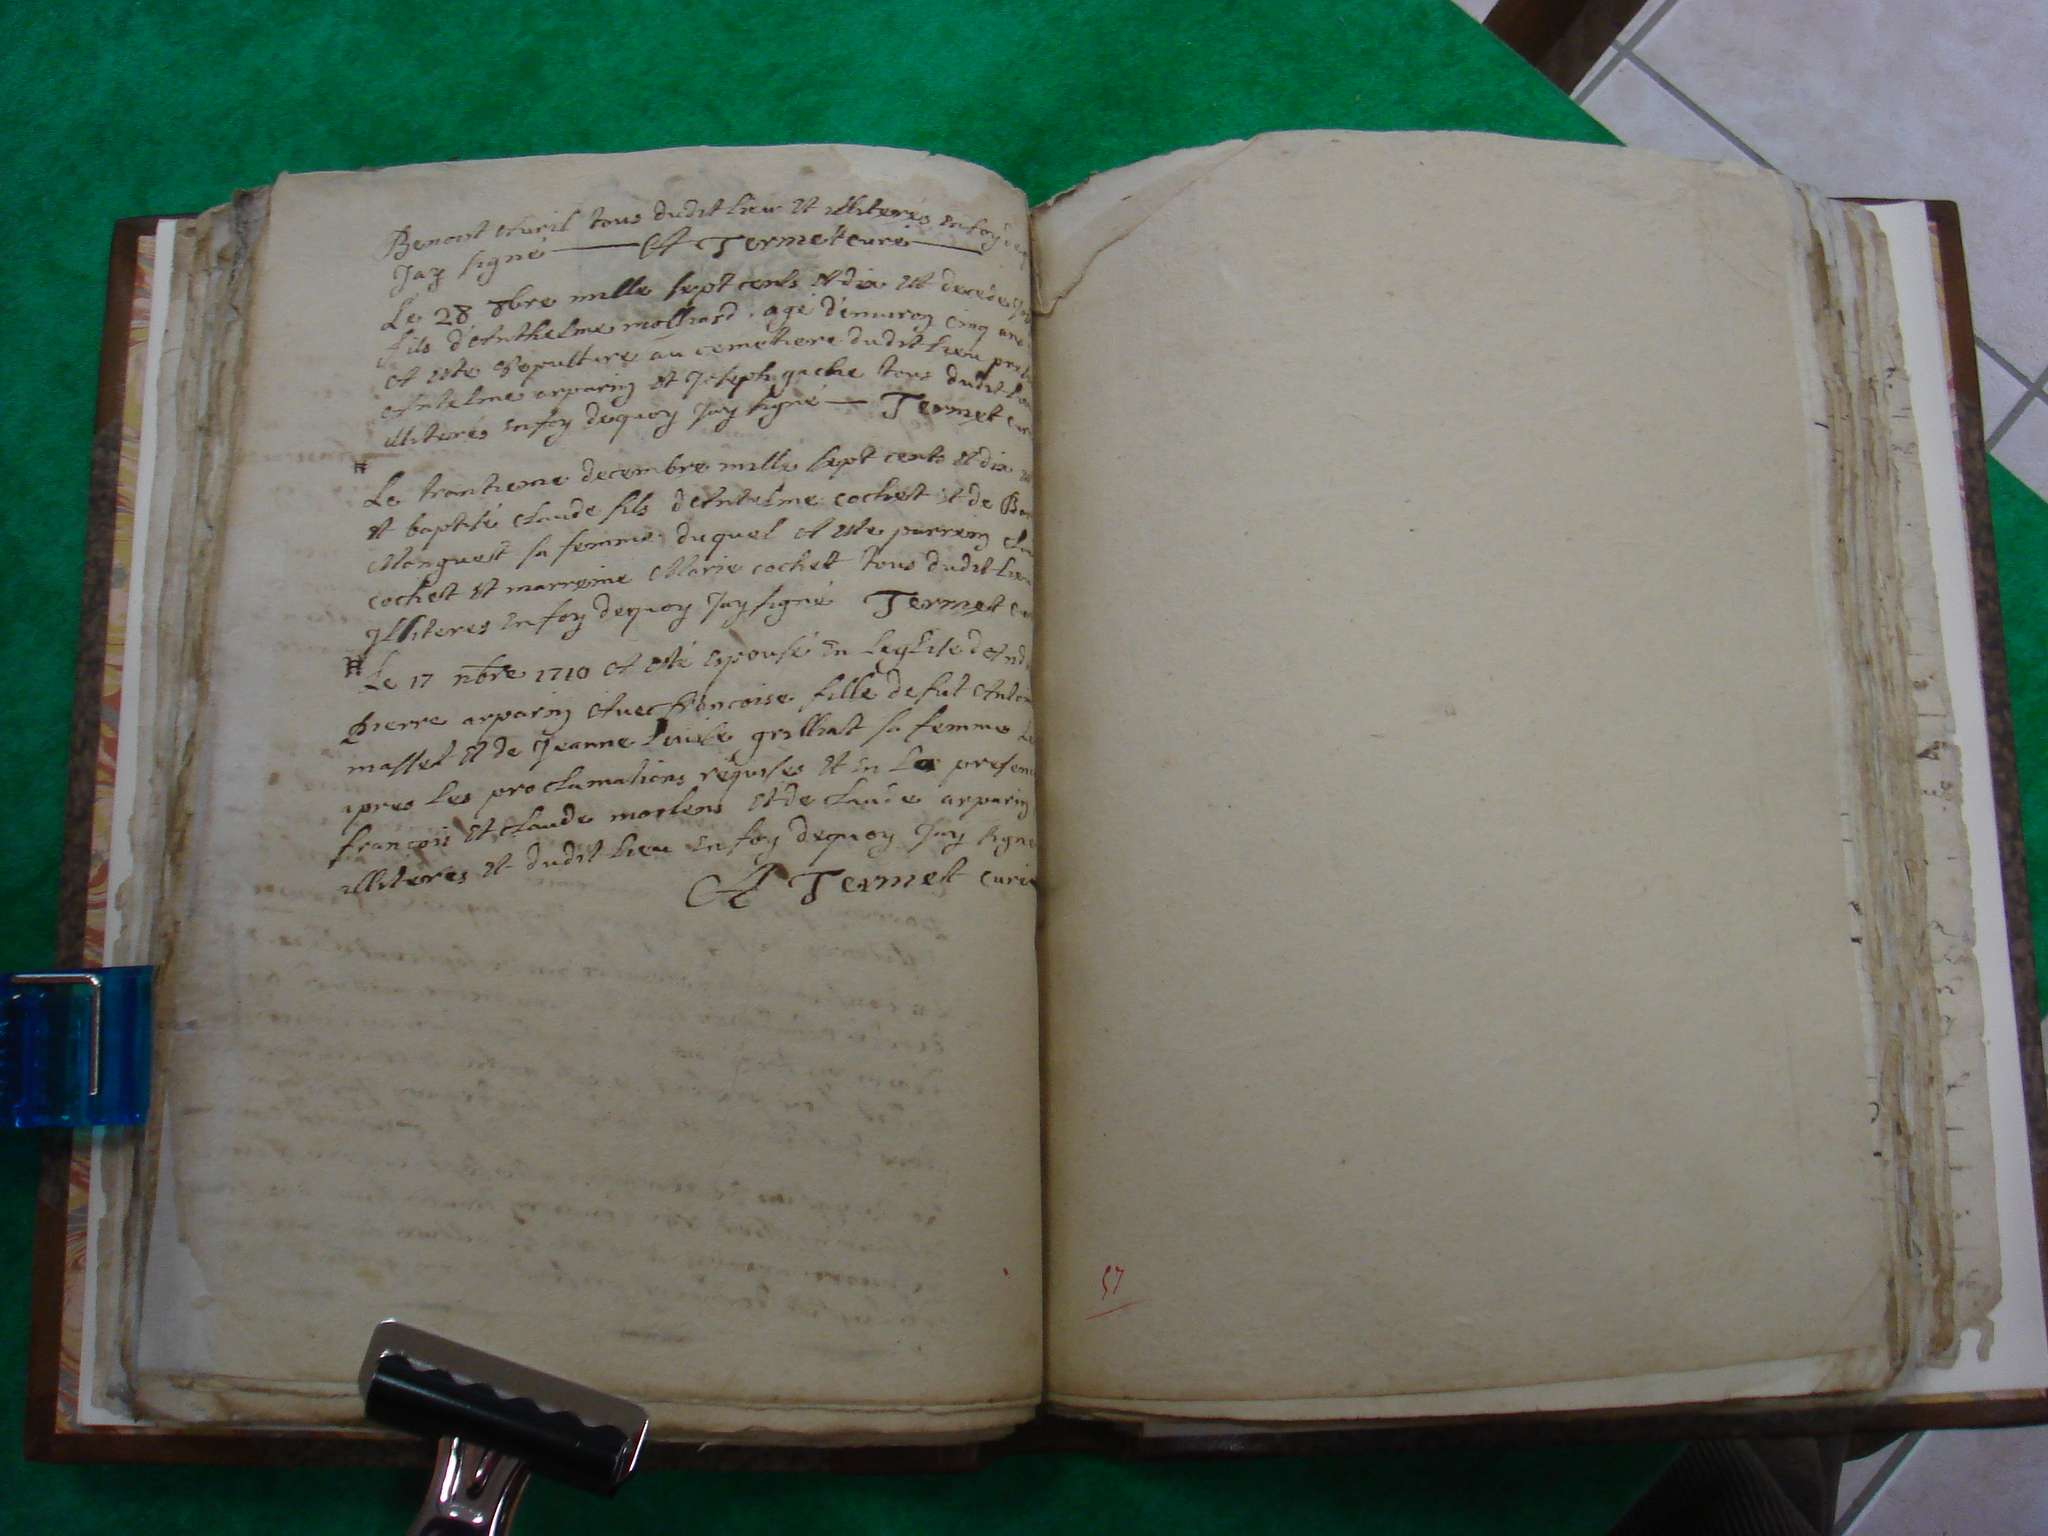 Benoist Curil tous dudit lieu et illiterés en foy de q
Jay signé A Termet curé
Le 28 8bre mille sept cents et dix est decéde
fils d'Anthelme molliard agé d'enuiron cinq ans
A esté Sepulturé au cemetiere dudit lieu pres
Antelme arparin et Joseph gache tous dudit lieu
illiterés en foy dequoy Jay signé Termet cur
Le trantieme decembre mille sept cents et dix
et baptisé claude fils d'Antelme cochet et de Ben
Monguest sa femme duquel A esté parrein cla
cochet et marreine Marie cochet tous dudit lieu
Illiteres en foy dequoy Jay signé Termet cu
Le 17 nbre 1710 A esté espousé en leglise d'And
pierre arparin Auec francoise fille de fut Antoin
masset et de Jeanne Louise grilliat sa femme Le
apres les proclamations requises et en La presen
francois et claude martens et de claude arparin
illiteres et dudit lieu en foy dequoy Jay signé
A Termet curé
57